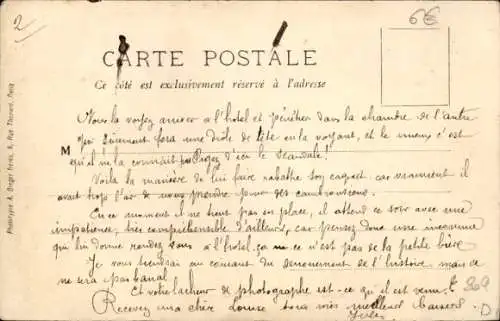 2
6€
CARTE POSTALE
Ce côté est exclusivement réservé à l'adresse
Phototypie A. Breger Frères, 9, Rue Thénard, Paris
Vous la voyez arriver à l'hotel et pénétrer dans la chambre de l'autre
qui sûrement fera une drôle de tête en la voyant, et le mieux c'est
M
qu'il ne la connaît pas Pigez d'ici le scandale!
Voila la manière de lui faire rabattre son caquet car vraiment il
avait trop l'air de nous prendre pour des cambrousiens.
En ce moment il ne tient pas en place, il attend ce soir avec une
impatience, très compréhensible d'ailleurs, car pensez donc une inconnue
qui lui donne rendez vous à l'hotel, ça ce n'est pas de la petite bière
Je vous tiendrai au courant du denouement de l'histoire mais ce
ne sera pas banal.
Et votre lâcheur de photographe est-ce qu'il est venu?
Recevez ma chère Louise nos meilleurs baisers
309
D